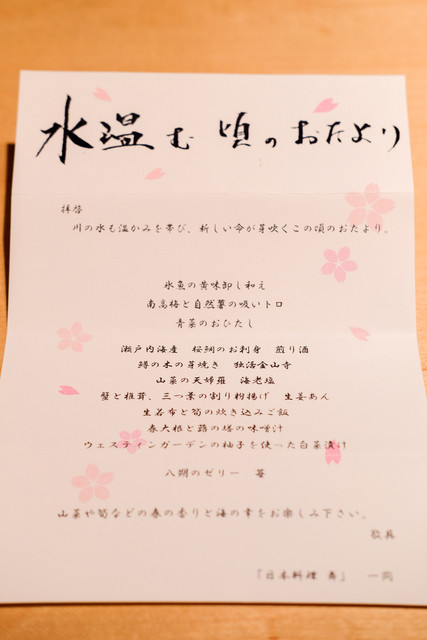 水温む頃のおたより
拝啓
川の水も温かみを帯び、新しい命が芽吹くこの頃のおたより。
氷魚の黄味卸し和え
南高梅と自然薯の吸いトロ
青菜のおひたし
瀬戸内海産 桜鯛のお刺身 煎り酒
鱒の木の芽焼き 独活金山寺
山菜の天婦羅 海老塩
蟹と椎茸、三つ葉の割り粉揚げ 生姜あん
生若布と筍の炊き込みご飯
春大根と蕗の塔の味噌汁
ウェスティンガーデンの柚子を使った白菜漬け
八朔のゼリー 苺
山菜や筍などの春の香りと海の幸をお楽しみ下さい。
敬具
「日本料理 舞」 一同